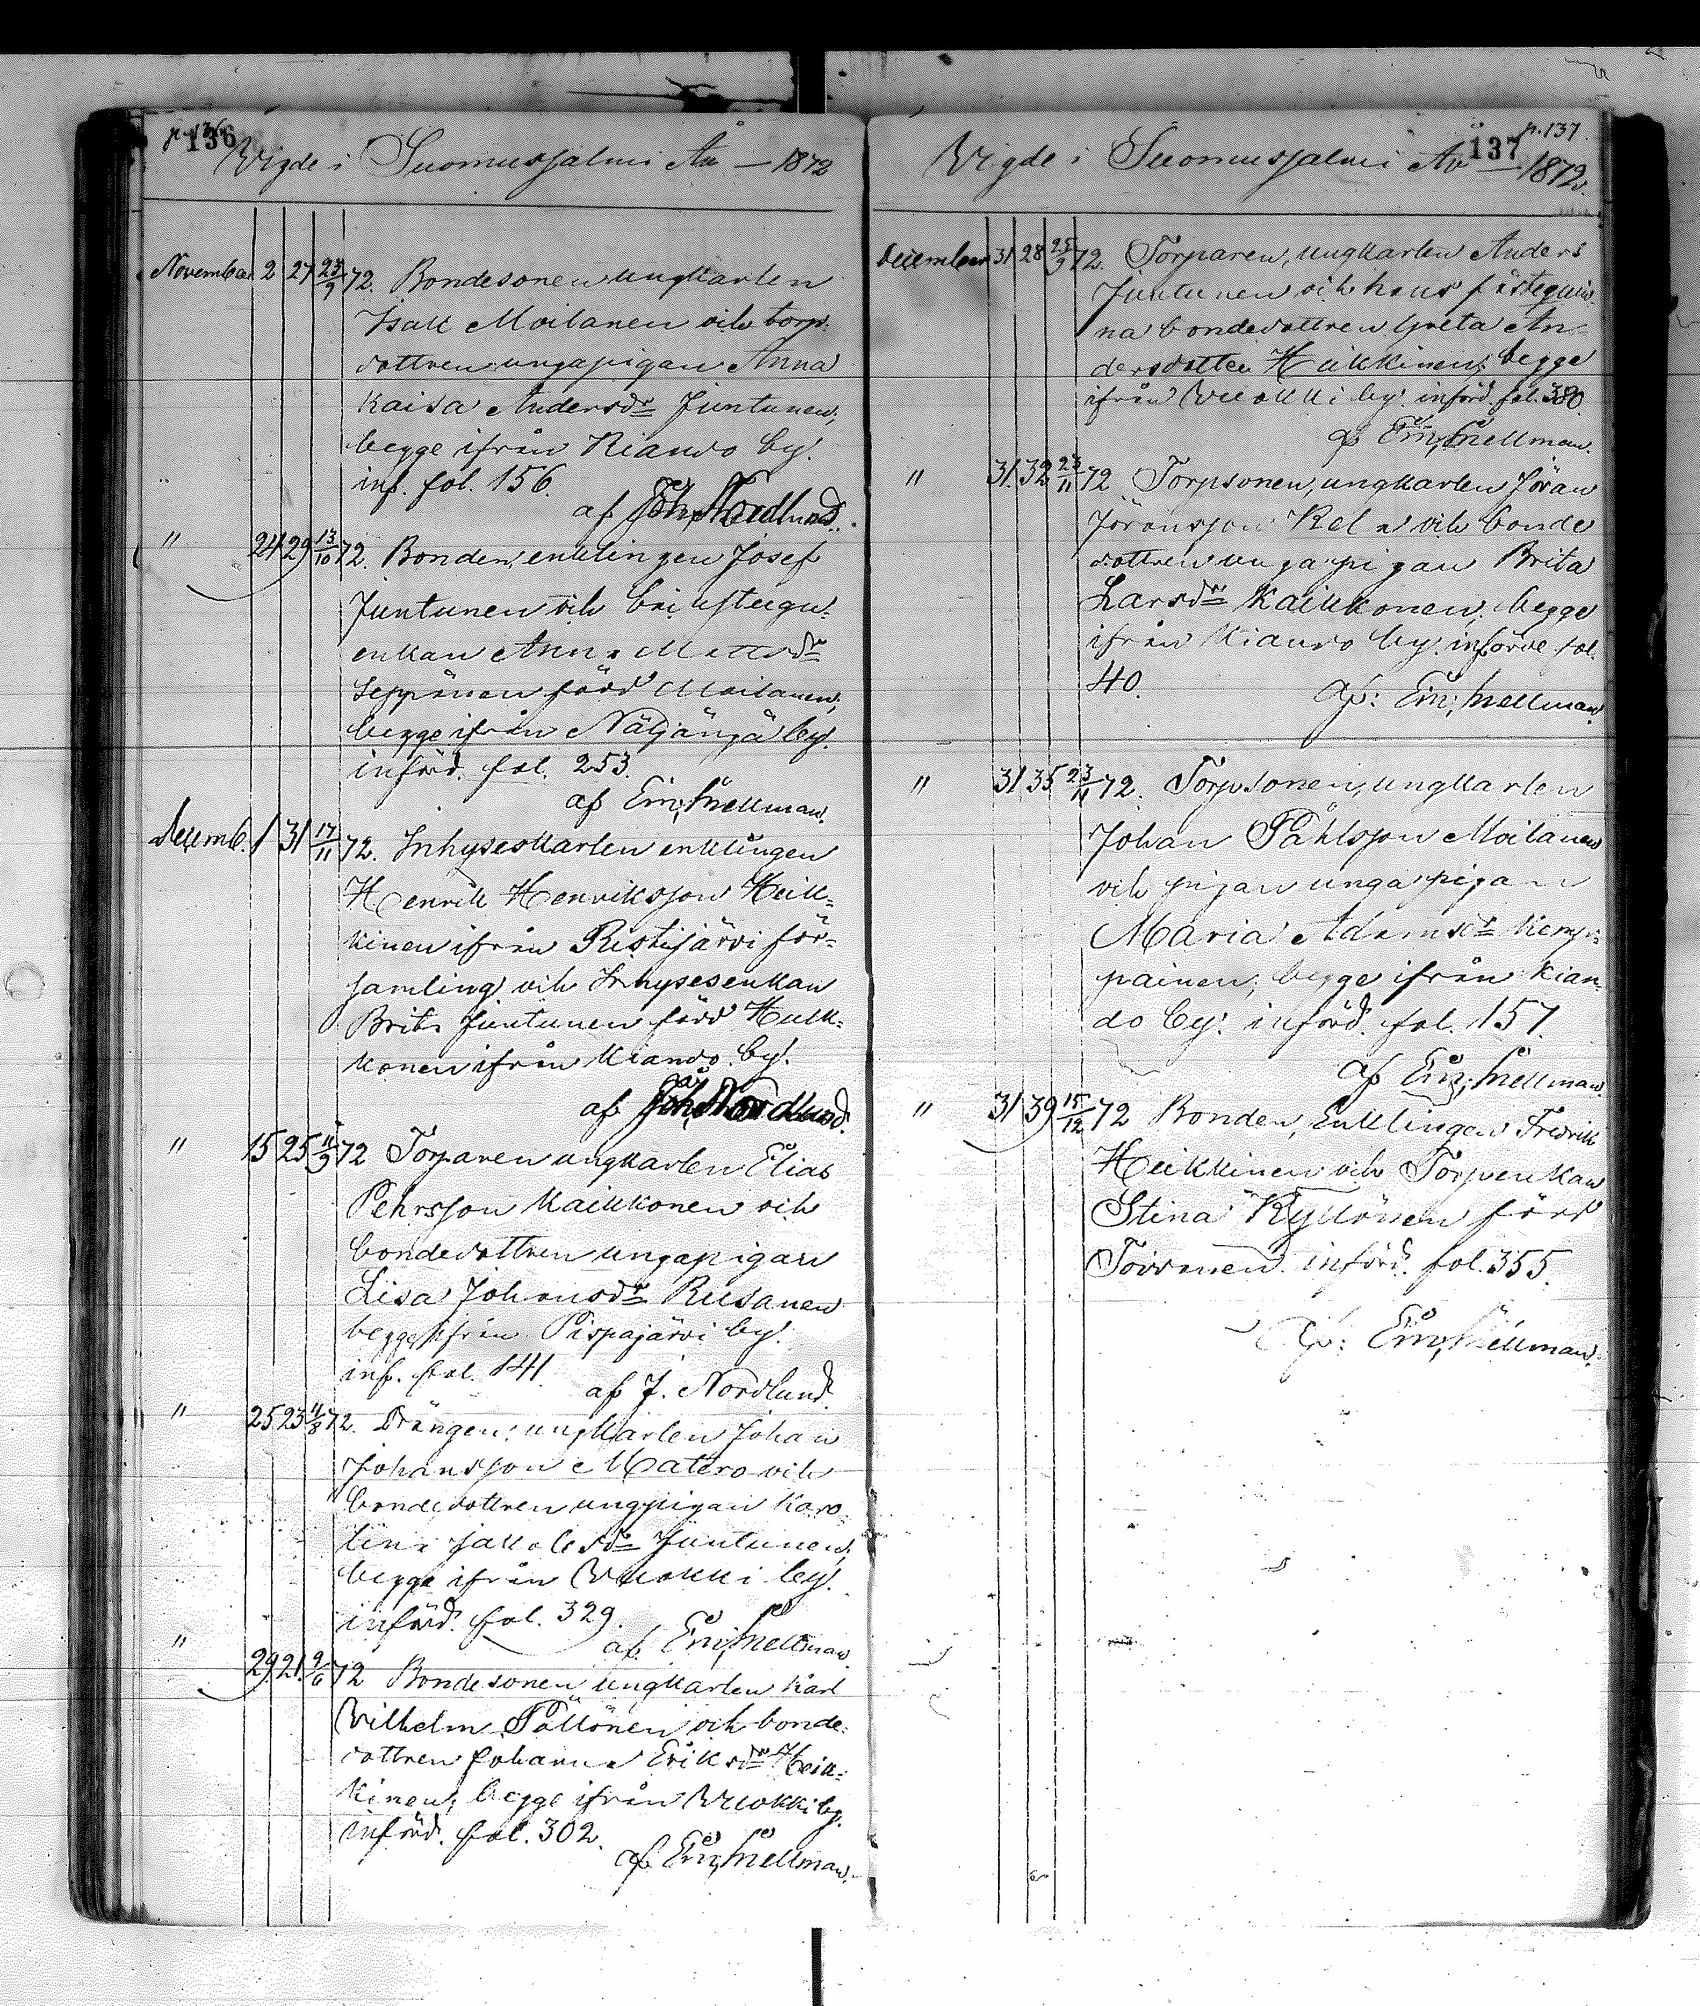 p. 136
136
Vigde i Suomussalmi År — 1872
November 2 27 23/9 72. Bondesonen ungkarlen
Isak Moilanen och torp.
dottren ungapigan Anna
Kaisa Andersdr Juntunen,
begge ifrån Kiando by.
inf. fol. 156.
af Joh. Nordlund.
" 24 29 13/10 72. Bonden, enklingen Josef
Juntunen och
enkan Anna Mattsdr
Seppänen född Moilanen,
begge ifrån Näljängä by.
införd. fol. 253.
af Em. Snellman.
Decemb. 1 31 17/11 72. Inhyseskarlen enklingen
Henrik Henriksson Heik-
kinen ifrån Ristijärvi för-
samling och Inhysesenkan
Brita Juntunen född Hulk-
konen ifrån Kiando by.
af Joh. Nordlund.
" 15 25 11/9 72 Torparen ungkarlen Elias
Pehrsson Kaikkonen och
bondedottren ungapigan
Lisa Johansdr Rusanen
begge ifrån Pispajärvi by.
inf. fol. 141.
af J. Nordlund.
" 25 23 11/8 72. Drängen, ungkarlen Johan
Johansson Matero och
bondedottren ungpigan Karo-
lina Jakobsdr Juntunen,
begge ifrån Vuokki by.
införd. fol. 329.
af. Em. Snellman
" 29 21 9/6 72 Bondesonen ungkarlen Karl
Wilhelm Pällönen och bonde-
dottren Johanna Eriksdr Heik-
kinen, begge ifrån Vuokki by.
införd. fol. 302.
af. Em. Snellman.
p. 137
137
Vigde i Suomussalmi År — 1872.
December 31 28 25/9 72. Torparen, ungkarlen Anders
Juntunen och hans fästeqvin-
na bondedottren Greta An-
dersdotter Heikkinen, begge
ifrån Vuokki by. införd. fol. 380.
af Em. Snellman.
" 31. 32 23/11 72 Torpsonen, ungkarlen Jöran
Jöransson Kela och bonde
dottren ungapigan Brita
Larsdr Kaikkonen, begge
ifrån Kiando by. införde fol.
40.
af: Em. Snellman
" 31 35 23/11 72. Torpsonen, ungkarlen
Johan Påhlsson Moilanen
och pigan ungapigan
Maria Adamsdr Kemp-
painen, begge ifrån Kian-
do by. införd. fol. 157
af Em. Snellman
" 31 39 15/12 72 Bonden, Enklingen Fredrik
Heikkinen och Torpenkan
Stina Kyllönen född
Toivonen. införd. fol. 355.
af: Em. Snellman.